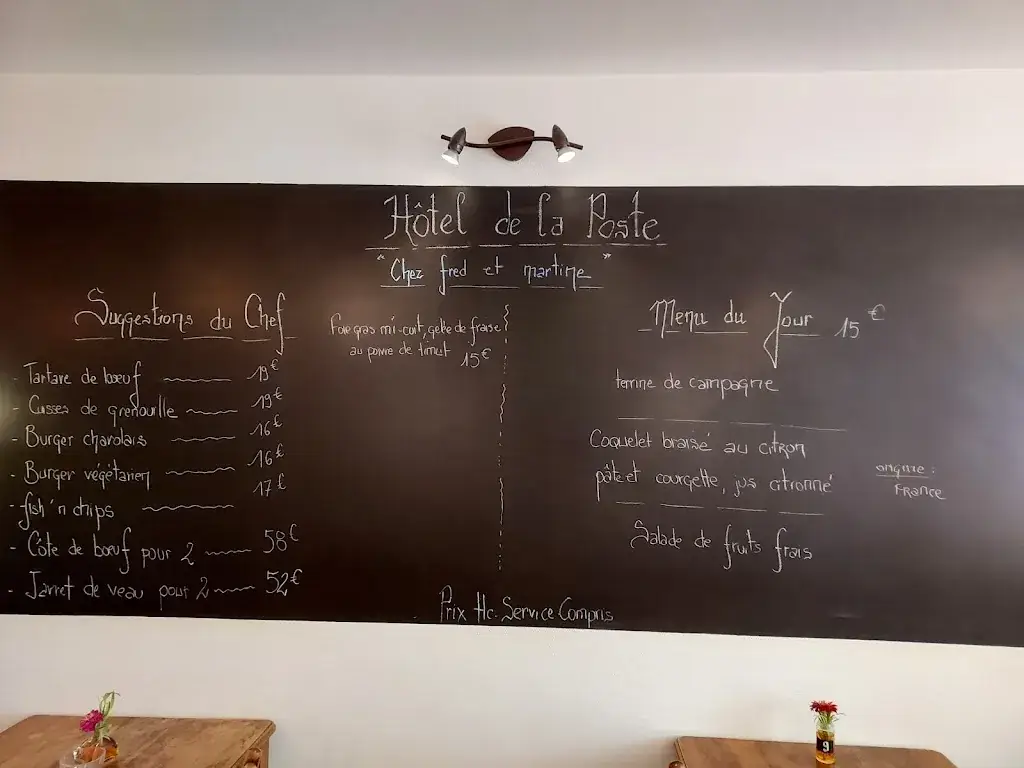 Hôtel de la Poste
"Chez fred et martine"
Suggestions du Chef
- Tartare de bœuf 19€
- Cuisses de grenouille 19€
- Burger charolais 16€
- Burger végétarien 16€
- fish'n chips 17€
- Côte de bœuf pour 2 58€
- Jarret de veau pour 2 52€
Foie gras mi-cuit, gelée de fraise
au poivre de timut 15€
Menu du Jour 15€
terrine de campagne
Coquelet braisé au citron
pâte et courgette, jus citronné
origine:
France
Salade de fruits frais
Prix Hc. Service Compris
9